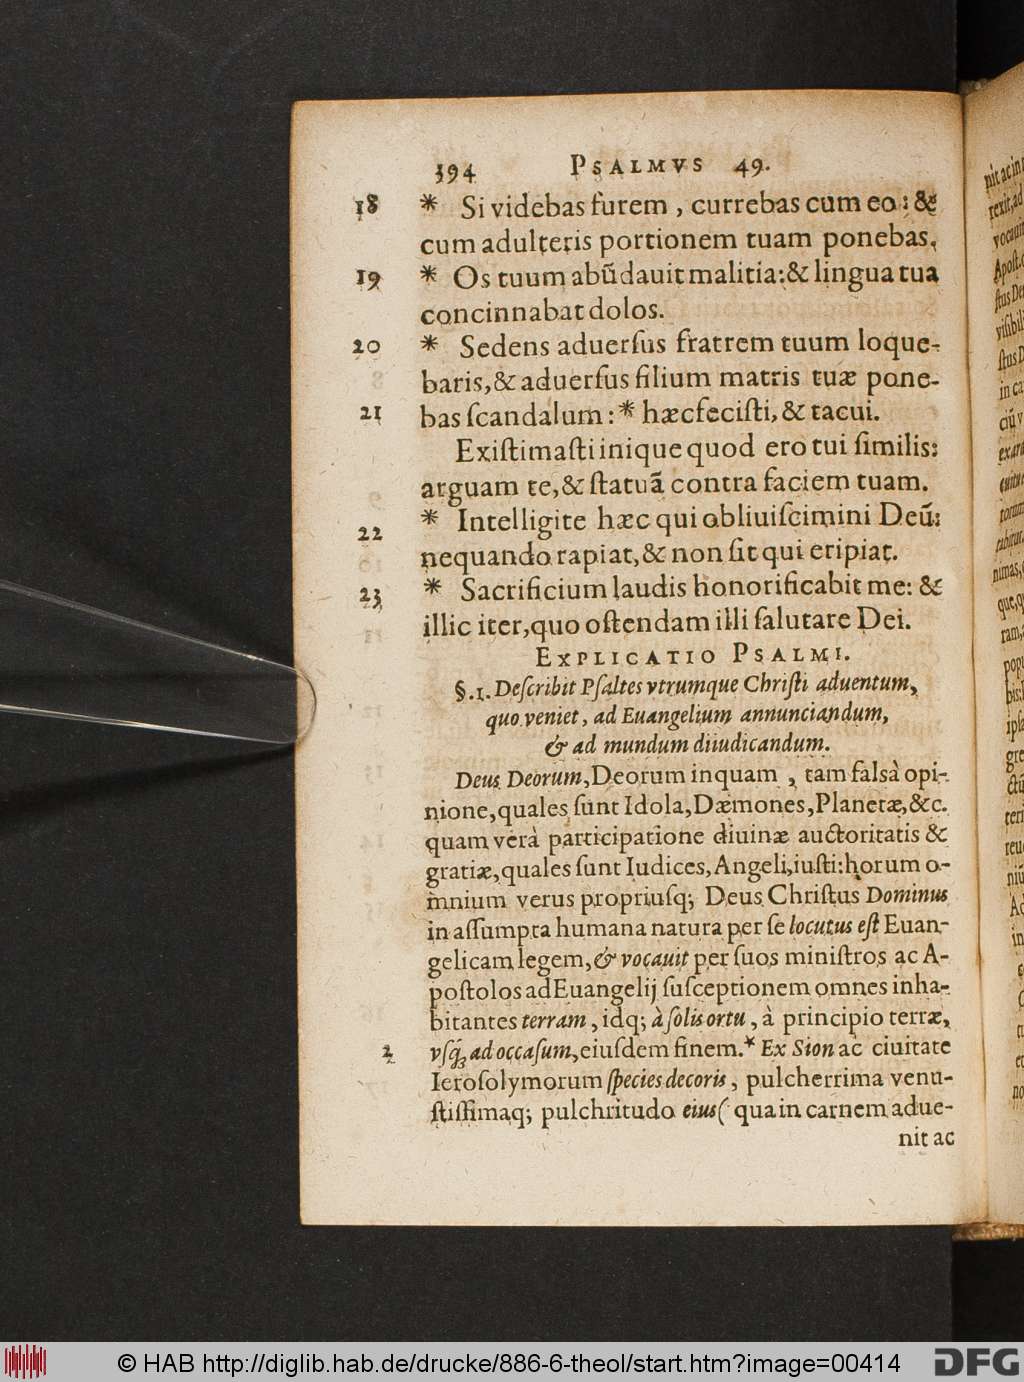 394 PSALMVS 49.
18 * Si videbas furem , currebas cum eo : &
cum adulteris portionem tuam ponebas.
19 * Os tuum abũdauit malitia: & lingua tua
concinnabat dolos.
20 * Sedens aduerſus fratrem tuum loque-
baris, & aduerſus filium matris tuæ pone-
21 bas ſcandalum : * hæc feciſti, & tacui.
Exiſtimaſti inique quod ero tui ſimilis:
arguam te, & ſtatuã contra faciem tuam.
22 * Intelligite hæc qui obliuiſcimini Deũ:
nequando rapiat, & non ſit qui eripiat.
23 * Sacrificium laudis honorificabit me: &
illic iter, quo oſtendam illi ſalutare Dei.
EXPLICATIO PSALMI.
§. 1. Deſcribit Pſaltes vtrumque Chriſti aduentum,
quo veniet, ad Euangelium annunciandum,
& ad mundum diiudicandum.
Deus Deorum, Deorum inquam , tam falsà opi-
nione, quales ſunt Idola, Dæmones, Planetæ, &c.
quam verà participatione diuinæ auctoritatis &
gratiæ, quales ſunt Iudices, Angeli, iuſti: horum o-
mnium verus propriuſq; Deus Chriſtus Dominus
in aſſumpta humana natura per ſe locutus eſt Euan-
gelicam legem, & vocauit per ſuos miniſtros ac A-
poſtolos ad Euangelij ſuſceptionem omnes inha-
bitantes terram , idq; à ſolis ortu , à principio terræ,
2 vſq; ad occaſum, eiuſdem finem. * Ex Sion ac ciuitate
Ieroſolymorum ſpecies decoris , pulcherrima venu-
ſtiſſimaq; pulchritudo eius ( qua in carnem adue-
nit ac
© HAB http://diglib.hab.de/drucke/886-6-theol/start.htm?image=00414
DFG